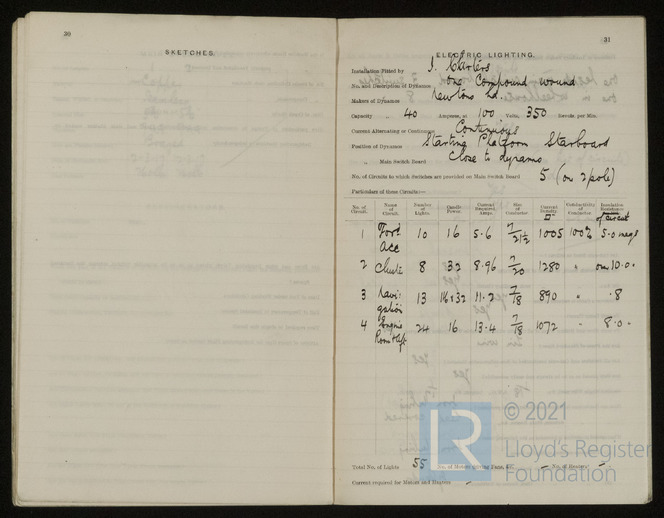 30
SKETCHES.
31
ELECTRIC LIGHTING.
Installation Fitted by J. Carters
No. and Description of Dynamos One Compound wound
Makers of Dynamos Newtons Ltd.
Capacity „ 40 Amperes, at 100 Volts, 350 Revols. per Min.
Current Alternating or Continuous Continuous
Position of Dynamos Starting Platform Starboard
„ Main Switch Board Close to dynamo
No. of Circuits to which Switches are provided on Main Switch Board 5 (on 2 pole)
Particulars of these Circuits:—
No. of Circuit. Name of Circuit. Number of Lights. Candle Power. Current Required, Amps. Size of Conductor. Current Density. Conductivity of Conductor. Insulation Resistance of circuit
1 Ford Acc 10 16 5.6 7/21½ 1005 100% 5.0 megs
2 8 32 8.96 7/20 1280 „ over 10.0 „
3 Navigation 13 16 & 32 11.2 7/18 890 „ .8
4 Engine Room & Aft 24 16 13.4 7/18 1072 „ 8.0 „
Total No. of Lights 55 No. of Motors driving Fans, &c. — No. of Heaters —
Current required for Motors and Heaters —
LR © 2021
Lloyd's Register
Foundation